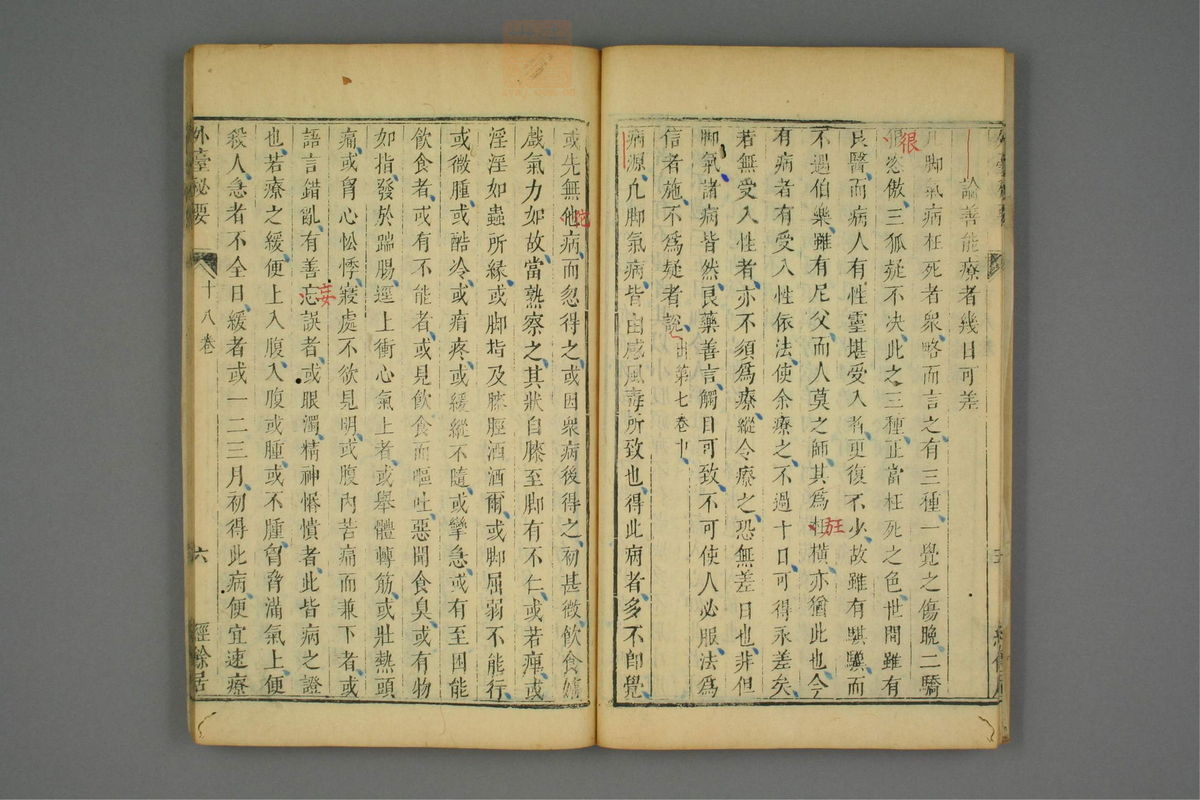 論善能療者幾日可差
凡脚氣病枉死者衆略而言之有三種一覺之傷晚二驕
很恣傲三狐疑不决此之三種正當枉死之色世間雖有
良醫而病人有性靈堪受入者更復不少故雖有騏驥而
不遇伯樂雖有尼父而人莫之師其爲枉橫亦猶此也今
有病者有受入性依法使余療之不過十日可得永差矣
若無受入性者亦不須爲療縱令療之恐無差日也非但
脚氣諸病皆然良藥善言觸目可致不可使人必服法爲
信者施不爲疑者說出第七卷中
病源凡脚氣病皆由感風毒所致也得此病者多不卽覺
外臺秘要 十八卷 六 經餘居
或先無他病而忽得之或因衆病後得之初甚微飮食嬉
戲氣力如故當熟察之其狀自膝至脚有不仁或若痺或
淫淫如蟲所緣或脚指及膝脛洒洒爾或脚屈弱不能行
或微腫或酷冷或痟疼或緩縱不隨或攣急或有至困能
飮食者或有不能者或見飮食而嘔吐惡聞食臭或有物
如指發於踹腸逕上衝心氣上者或舉體轉筋或壯熱頭
痛或胷心忪悸寢處不欲見明或腹內苦痛而兼下者或
語言錯亂有善忘誤者或眼濁精神惛憒者此皆病之證
也若療之緩便上入腹入腹或腫或不腫胷脅滿氣上便
殺人急者不全日緩者或一二三月初得此病便宜速療
很
枉
妄